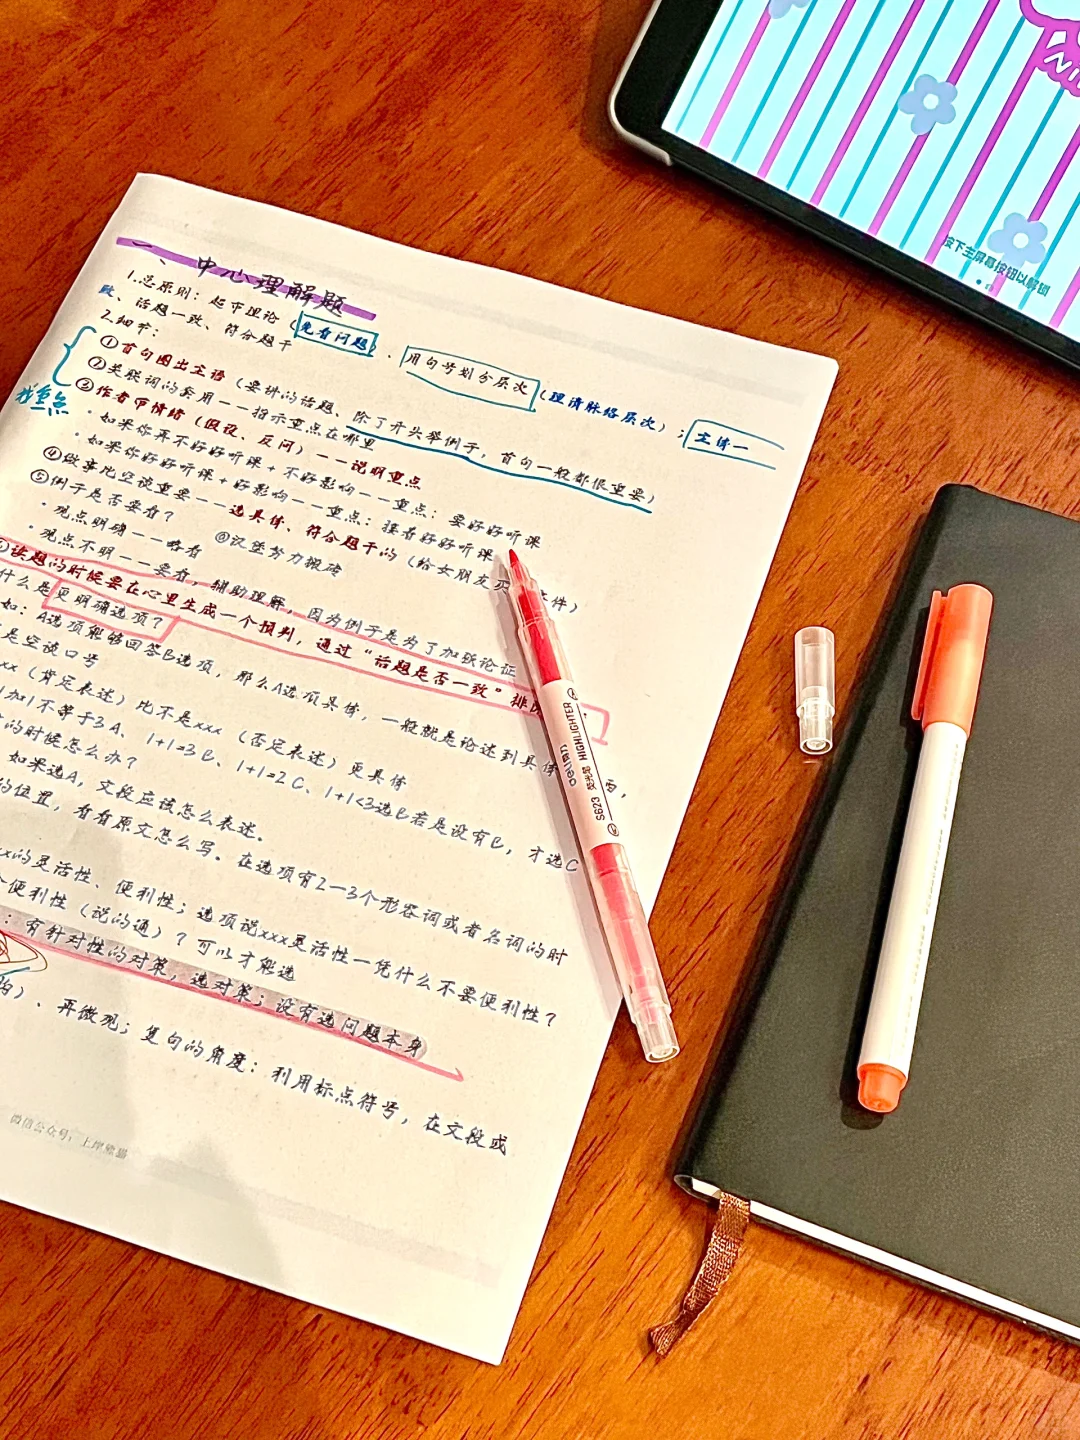 一、中心理解题
1.总原则：起币理论（先看问题）、用句号划分层次（理清脉络层次）；主谓一
致、话题一致、符合题干
2.细节：
找重点
①首句圈出主语（要讲的话题、除了开头举例子，首句一般都很重要）
②关联词的套用——指示重点在哪里
③作者甲情绪（假设、反问）——说明重点
·如果你再不好好听课+不好影响——重点：要好好听课
·如果你好好听课+好影响——重点：接着好好听课
④做事比空谈重要——选具体、符合题干的（给女朋友买
件）
⑤例子是否要看？ ⑧汉堡努力搬砖
·观点明确——略看
·观点不明——要看，辅助理解，因为例子是为了加强论证
读题的时候要在心里生成一个预判，通过“话题是否一致”排
什么是更明确选项？
如：A选项能够回答B选项，那么A选项具体，一般就是论述到具体
是空谈口号
xx（肯定表达）比不是xxx（否定表达）更具体
1加1不等于3 A、1+1=3 B、1+1=2 C、1+1<3选B若是没有B，才选C
的时候怎么办？
如果选A，文段应该怎么表述。
的位置，看看原文怎么写。在选项有2—3个形容词或者名词的时
x的灵活性、便利性；选项说xxx灵活性—凭什么不要便利性？
便利性（说的通）？可以才能选
：有针对性的对策，选对策；没有选问题本身
）、再微观；复句的角度：利用标点符号，在文段或
微信公众号：上岸熊猫
S623 荧光笔 HIGHLIGHTER
按下主屏幕按钮以解锁